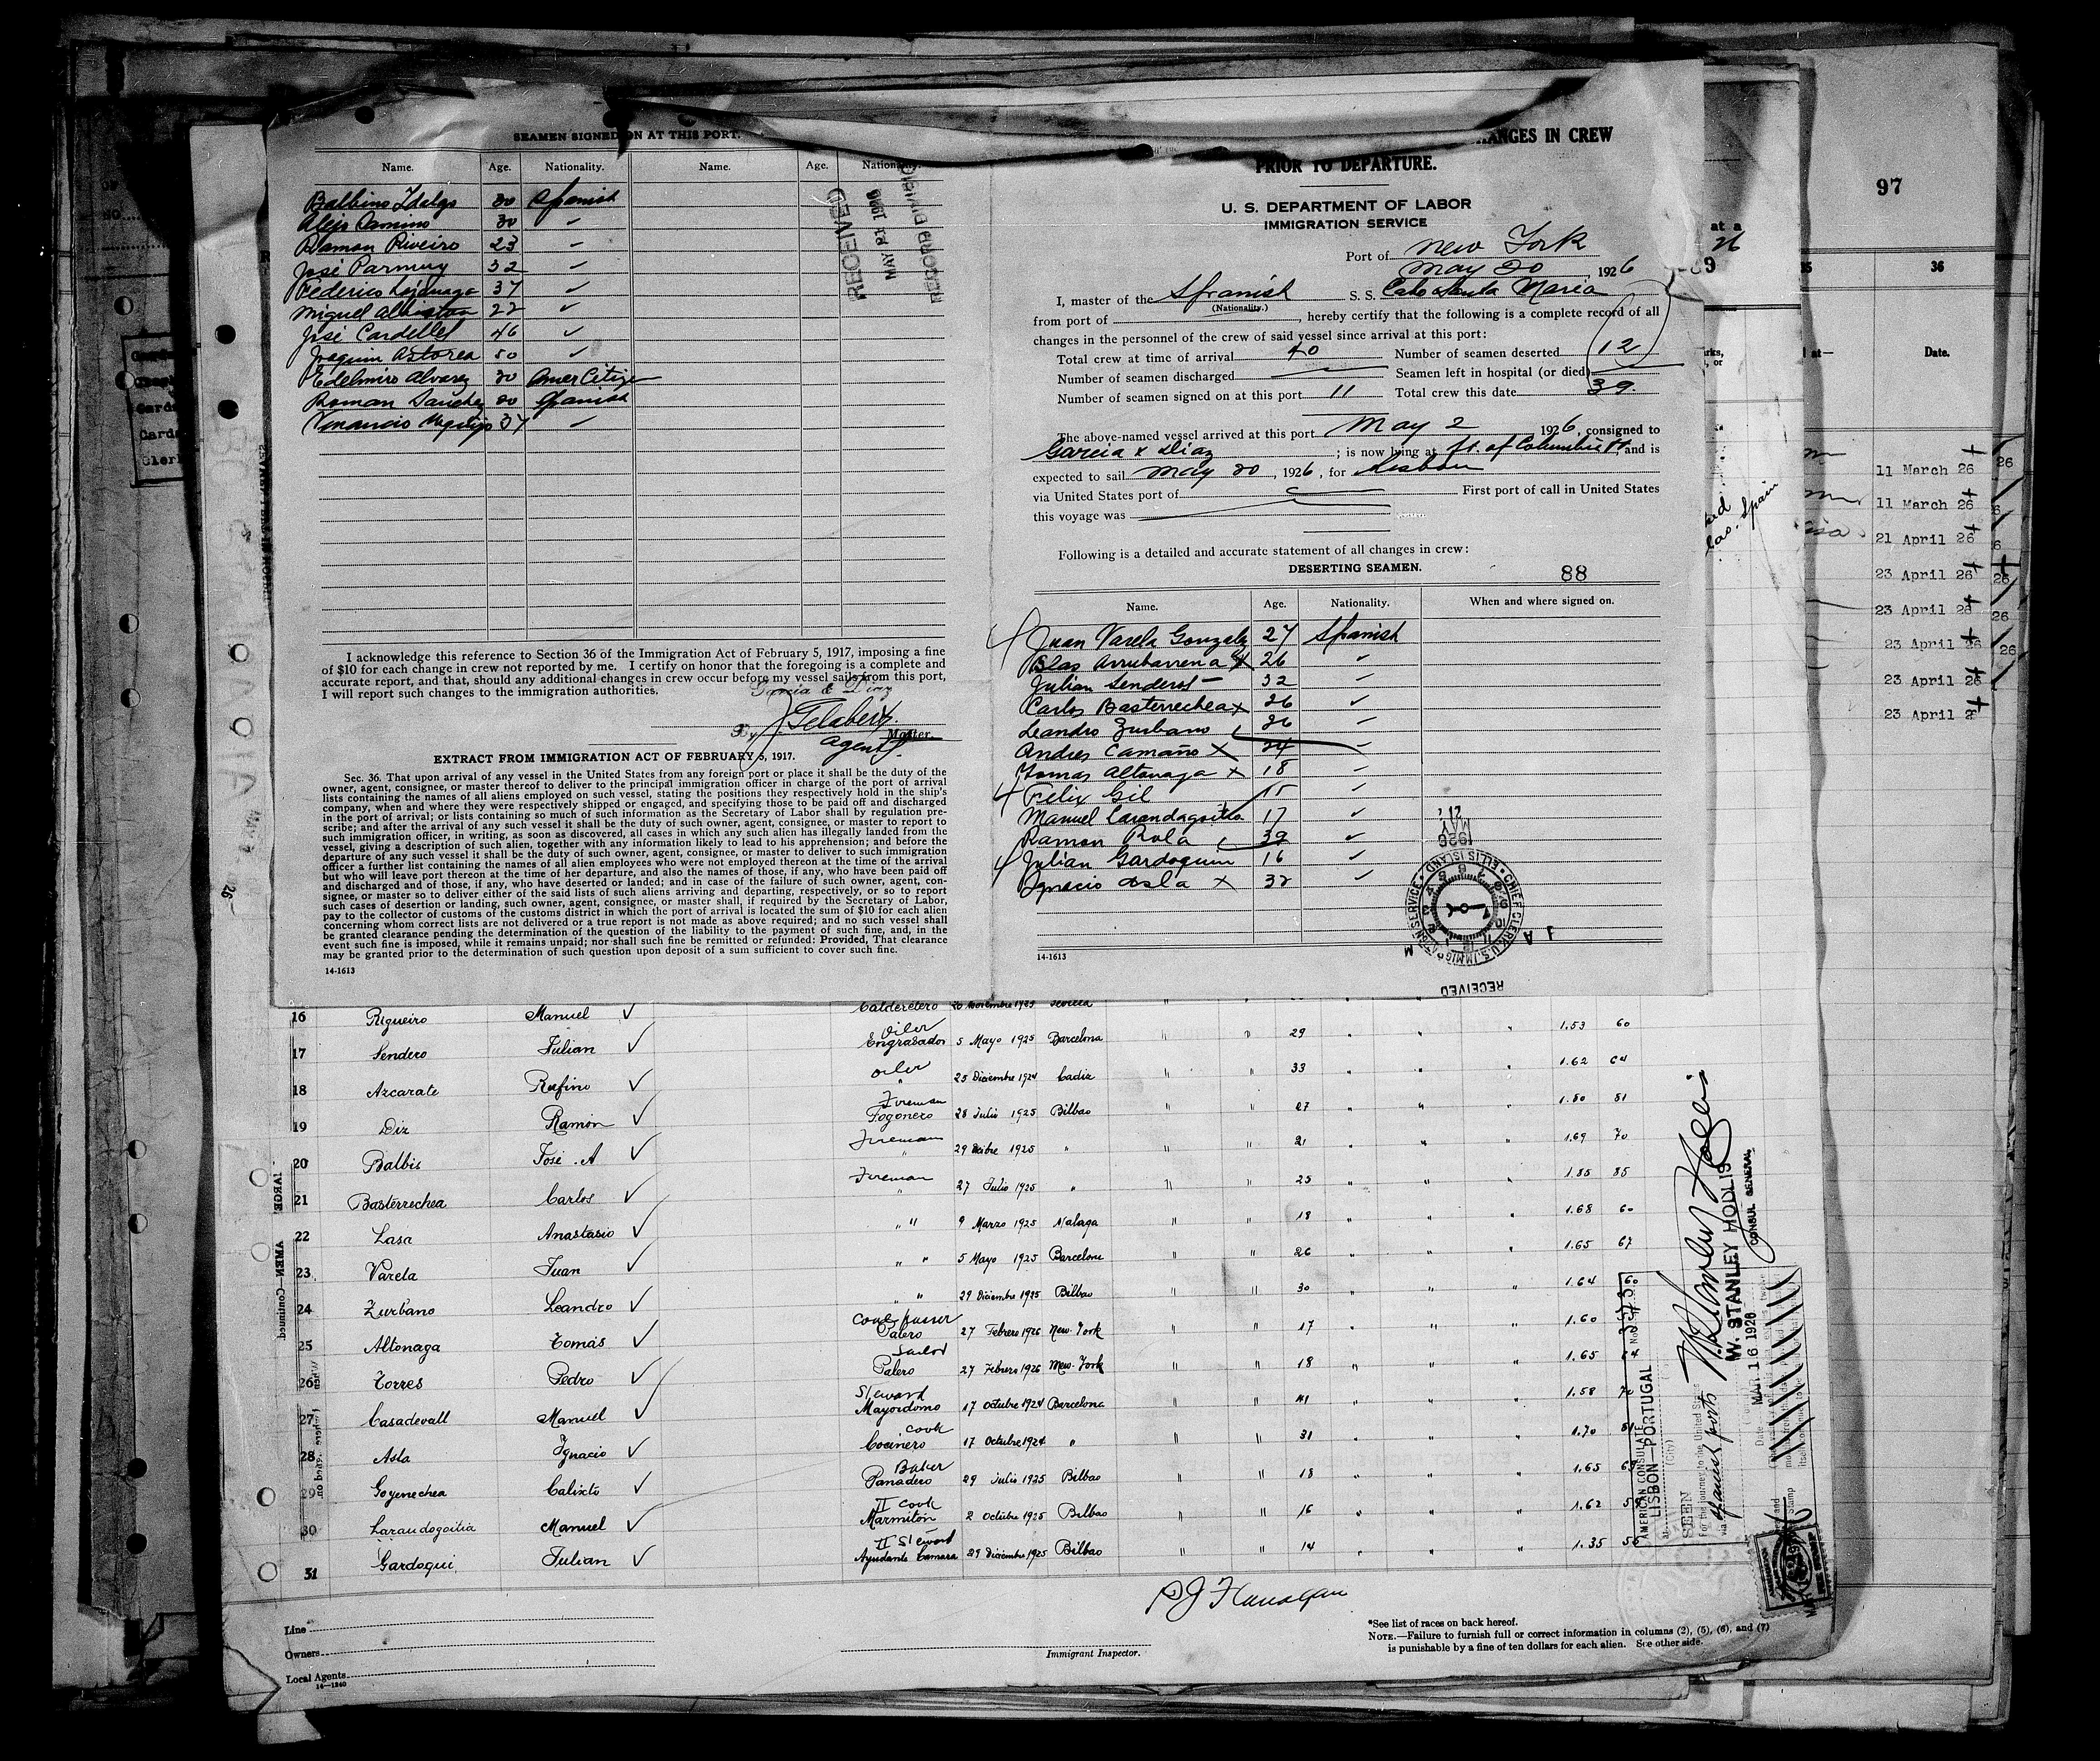 SEAMEN SIGNED ON AT THIS PORT.
Name. Age. Nationality. Name. Age. Nationality.
Balbino Idalgo 30 Spanish
Alejo Camino 30 "
Ramon Riveiro 23 "
José 32 "
Federico 37 "
Miguel 22 "
José Cardelles 46 "
Joaquin Astorea 50 "
Edelmiro Alvarez 30 Amer Citizen
Roman Sanchez 20 Spanish
37 "
RECEIVED
MAY 21 1926
RECORD DIVISION
I acknowledge this reference to Section 36 of the Immigration Act of February 5, 1917, imposing a fine
of $10 for each change in crew not reported by me. I certify on honor that the foregoing is a complete and
accurate report, and that, should any additional changes in crew occur before my vessel sails from this port,
I will report such changes to the immigration authorities.
Garcia & Diaz
By
agent Master.
EXTRACT FROM IMMIGRATION ACT OF FEBRUARY 5, 1917.
Sec. 36. That upon arrival of any vessel in the United States from any foreign port or place it shall be the duty of the
owner, agent, consignee, or master thereof to deliver to the principal immigration officer in charge of the port of arrival
lists containing the names of all aliens employed on such vessel, stating the positions they respectively hold in the ship's
company, when and where they were respectively shipped or engaged, and specifying those to be paid off and discharged
in the port of arrival; or lists containing so much of such information as the Secretary of Labor shall by regulation pre-
scribe; and after the arrival of any such vessel it shall be the duty of such owner, agent, consignee, or master to report to
such immigration officer, in writing, as soon as discovered, all cases in which any such alien has illegally landed from the
vessel, giving a description of such alien, together with any information likely to lead to his apprehension; and before the
departure of any such vessel it shall be the duty of such owner, agent, consignee, or master to deliver to such immigration
officer a further list containing the names of all alien employees who were not employed thereon at the time of the arrival
but who will leave port thereon at the time of her departure, and also the names of those, if any, who have been paid off
and discharged and of those, if any, who have deserted or landed; and in case of the failure of such owner, agent, con-
signee, or master so to deliver either of the said lists of such aliens arriving and departing, respectively, or so to report
such cases of desertion or landing, such owner, agent, consignee, or master shall, if required by the Secretary of Labor,
pay to the collector of customs of the customs district in which the port of arrival is located the sum of $10 for each alien
concerning whom correct lists are not delivered or a true report is not made as above required; and no such vessel shall
be granted clearance pending the determination of the question of the liability to the payment of such fine, and, in the
event such fine is imposed, while it remains unpaid; nor shall such fine be remitted or refunded: Provided, That clearance
may be granted prior to the determination of such question upon deposit of a sum sufficient to cover such fine.
14-1613
ANGES IN CREW
PRIOR TO DEPARTURE.
U. S. DEPARTMENT OF LABOR
IMMIGRATION SERVICE
Port of New York
May 20, 1926
I, master of the Spanish S. S. Cabo Santa Maria
(Nationality.)
from port of , hereby certify that the following is a complete record of all
changes in the personnel of the crew of said vessel since arrival at this port:
Total crew at time of arrival 40 Number of seamen deserted 12
Number of seamen discharged Seamen left in hospital (or died)
Number of seamen signed on at this port 11 Total crew this date 39
The above-named vessel arrived at this port May 2 1926, consigned to
Garcia & Diaz ; is now lying at ft. of Columbia St. and is
expected to sail May 20, 1926, for Lisbon
via United States port of First port of call in United States
this voyage was
Following is a detailed and accurate statement of all changes in crew:
DESERTING SEAMEN.
88
Name. Age. Nationality. When and where signed on.
Juan Varela Gonzalez 27 Spanish
Blas Arrubarrena x 26 "
Julian Senderos 32 "
Carlos Basterrechea x 26 "
Leandro Zurbano 26 "
Andres Camaño x 24 "
Tomas Altonaga x 18 "
Felix Gil 15 "
Manuel Larandagoitia 17 "
Ramon Rola 39 "
Julian Gardoquin 16 "
Ignacio Asla x 32 "
14-1613
1926 MAY 21
CHIEF CLERK, U.S. IMMIGRATION SERVICE · ELLIS ISLAND
RECEIVED
16 Rigueiro Manuel Calderetero 20 Noviembre 1925 Sevilla
17 Sendero Julian Oiler Engrasador 5 Mayo 1925 Barcelona " " 29 " " " 1.53 60
18 Azcarate Rufino Oiler " 25 Diciembre 1924 Cadiz " " 33 " " " 1.62 64
19 Diz Ramon Fireman Fogonero 28 Julio 1925 Bilbao " " 27 " " " 1.80 81
20 Balbis José A Fireman " 29 1925 " " " 21 " " " 1.69 70
21 Basterrechea Carlos Fireman " 27 Julio 1925 " " " 25 " " " 1.85 85
22 Lasa Anastasio " " 9 Marzo 1925 Malaga " " 18 " " " 1.68 60
23 Varela Juan " " 5 Mayo 1925 Barcelona " " 26 " " " 1.65 67
24 Zurbano Leandro " " 29 Diciembre 1925 Bilbao " " 30 " " " 1.64 60
25 Altonaga Tomás Coal passer Palero 27 Febrero 1926 New-York " " 17 " " " 1.60
26 Torres Pedro Sailor Palero 27 Febrero 1926 New-York " " 18 " " " 1.65 64
27 Casadevall Manuel Steward Mayordomo 17 Octubre 1924 Barcelona " " 41 " " " 1.58 70
28 Asla Ignacio Cook Cocinero 17 Octubre 1924 " " " 31 " " " 1.70 81
29 Goyenechea Calixto Baker Panadero 29 Julio 1925 Bilbao " " 18 " " " 1.65 69
30 Larandogoitia Manuel II Cook Marmiton 2 Octubre 1925 Bilbao " " 16 " " " 1.62 59
31 Gardoqui Julian II Steward Ayudante Camara 29 Diciembre 1925 Bilbao " " 14 " " " 1.35 56
Line
Owners
Local Agents
14-1240
Immigrant Inspector.
*See list of races on back hereof.
NOTE.—Failure to furnish full or correct information in columns (2), (5), (6), and (7)
is punishable by a fine of ten dollars for each alien. See other side.
AMERICAN CONSULATE
LISBON—PORTUGAL
(City)
SEEN
For the journey to the United States
via Spanish ports
Date MAR 16 1926
W. STANLEY HOLLIS
CONSUL GENERAL
AMEN—Continued
97
36
Date.
11 March 26
11 March 26
21 April 26
23 April 26
23 April 26
23 April 26
23 April 26
23 April 2